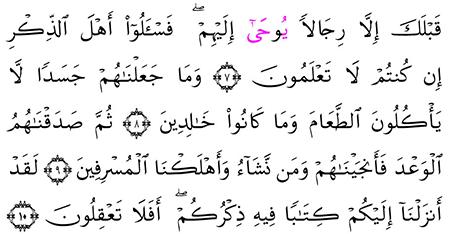 قَبْلَكَ إِلَّا رِجَالًا يُوحَىٰٓ إِلَيْهِمْ ۖ فَسْـَٔلُوٓا۟ أَهْلَ ٱلذِّكْرِ
إِن كُنتُمْ لَا تَعْلَمُونَ ﴿٧﴾ وَمَا جَعَلْنَـٰهُمْ جَسَدًا لَّا
يَأْكُلُونَ ٱلطَّعَامَ وَمَا كَانُوا۟ خَـٰلِدِينَ ﴿٨﴾ ثُمَّ صَدَقْنَـٰهُمُ
ٱلْوَعْدَ فَأَنجَيْنَـٰهُمْ وَمَن نَّشَآءُ وَأَهْلَكْنَا ٱلْمُسْرِفِينَ ﴿٩﴾ لَقَدْ
أَنزَلْنَآ إِلَيْكُمْ كِتَـٰبًا فِيهِ ذِكْرُكُمْ ۖ أَفَلَا تَعْقِلُونَ ﴿١٠﴾